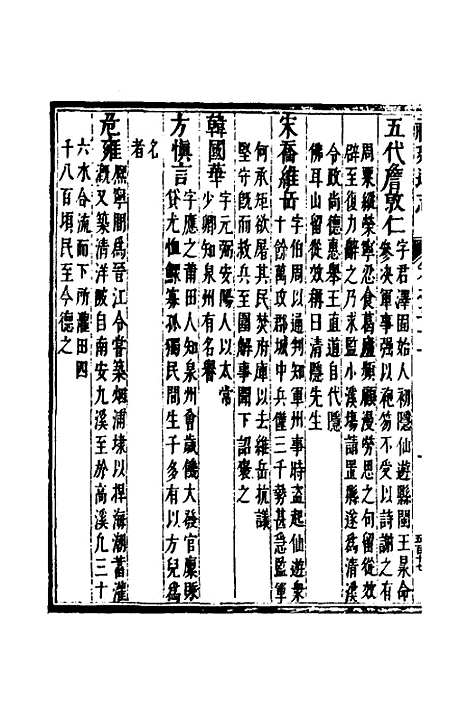 五代詹敦仁字君澤固始人初隱仙遊縣閩王㫤命
參決軍事强以袍笏不受以詩謝之有
周粟縱榮寧忍食葛廬頻顧漫勞思之句留從效
辟至復力辭之乃求監小溪塲請置縣遂爲清溪
令政尚德惠舉王直道自代隱
佛耳山留從效稱曰清隱先生
宋喬維岳字伯周以通判知軍州事時盗起仙遊衆
十餘萬攻郡城中兵僅三千勢甚急監軍
何承矩欲屠其民焚府庫以去維岳抗議
堅守旣而救兵至圍解事聞下詔褒之
韓國華字元弼安陽人以太常
少卿知泉州有名譽
方愼言字應之莆田人知泉州會歲饑大發官廩賑
貸尤恤鰥寡孤獨民間生子多有以方兒爲
名
者
危雍熈寧間爲晉江令嘗築烟浦埭以捍海潮蓄灌
漑又築清洋陂自南安九溪至於高溪凢三十
六水合流而下所灌田四
千八百頃民至今德之